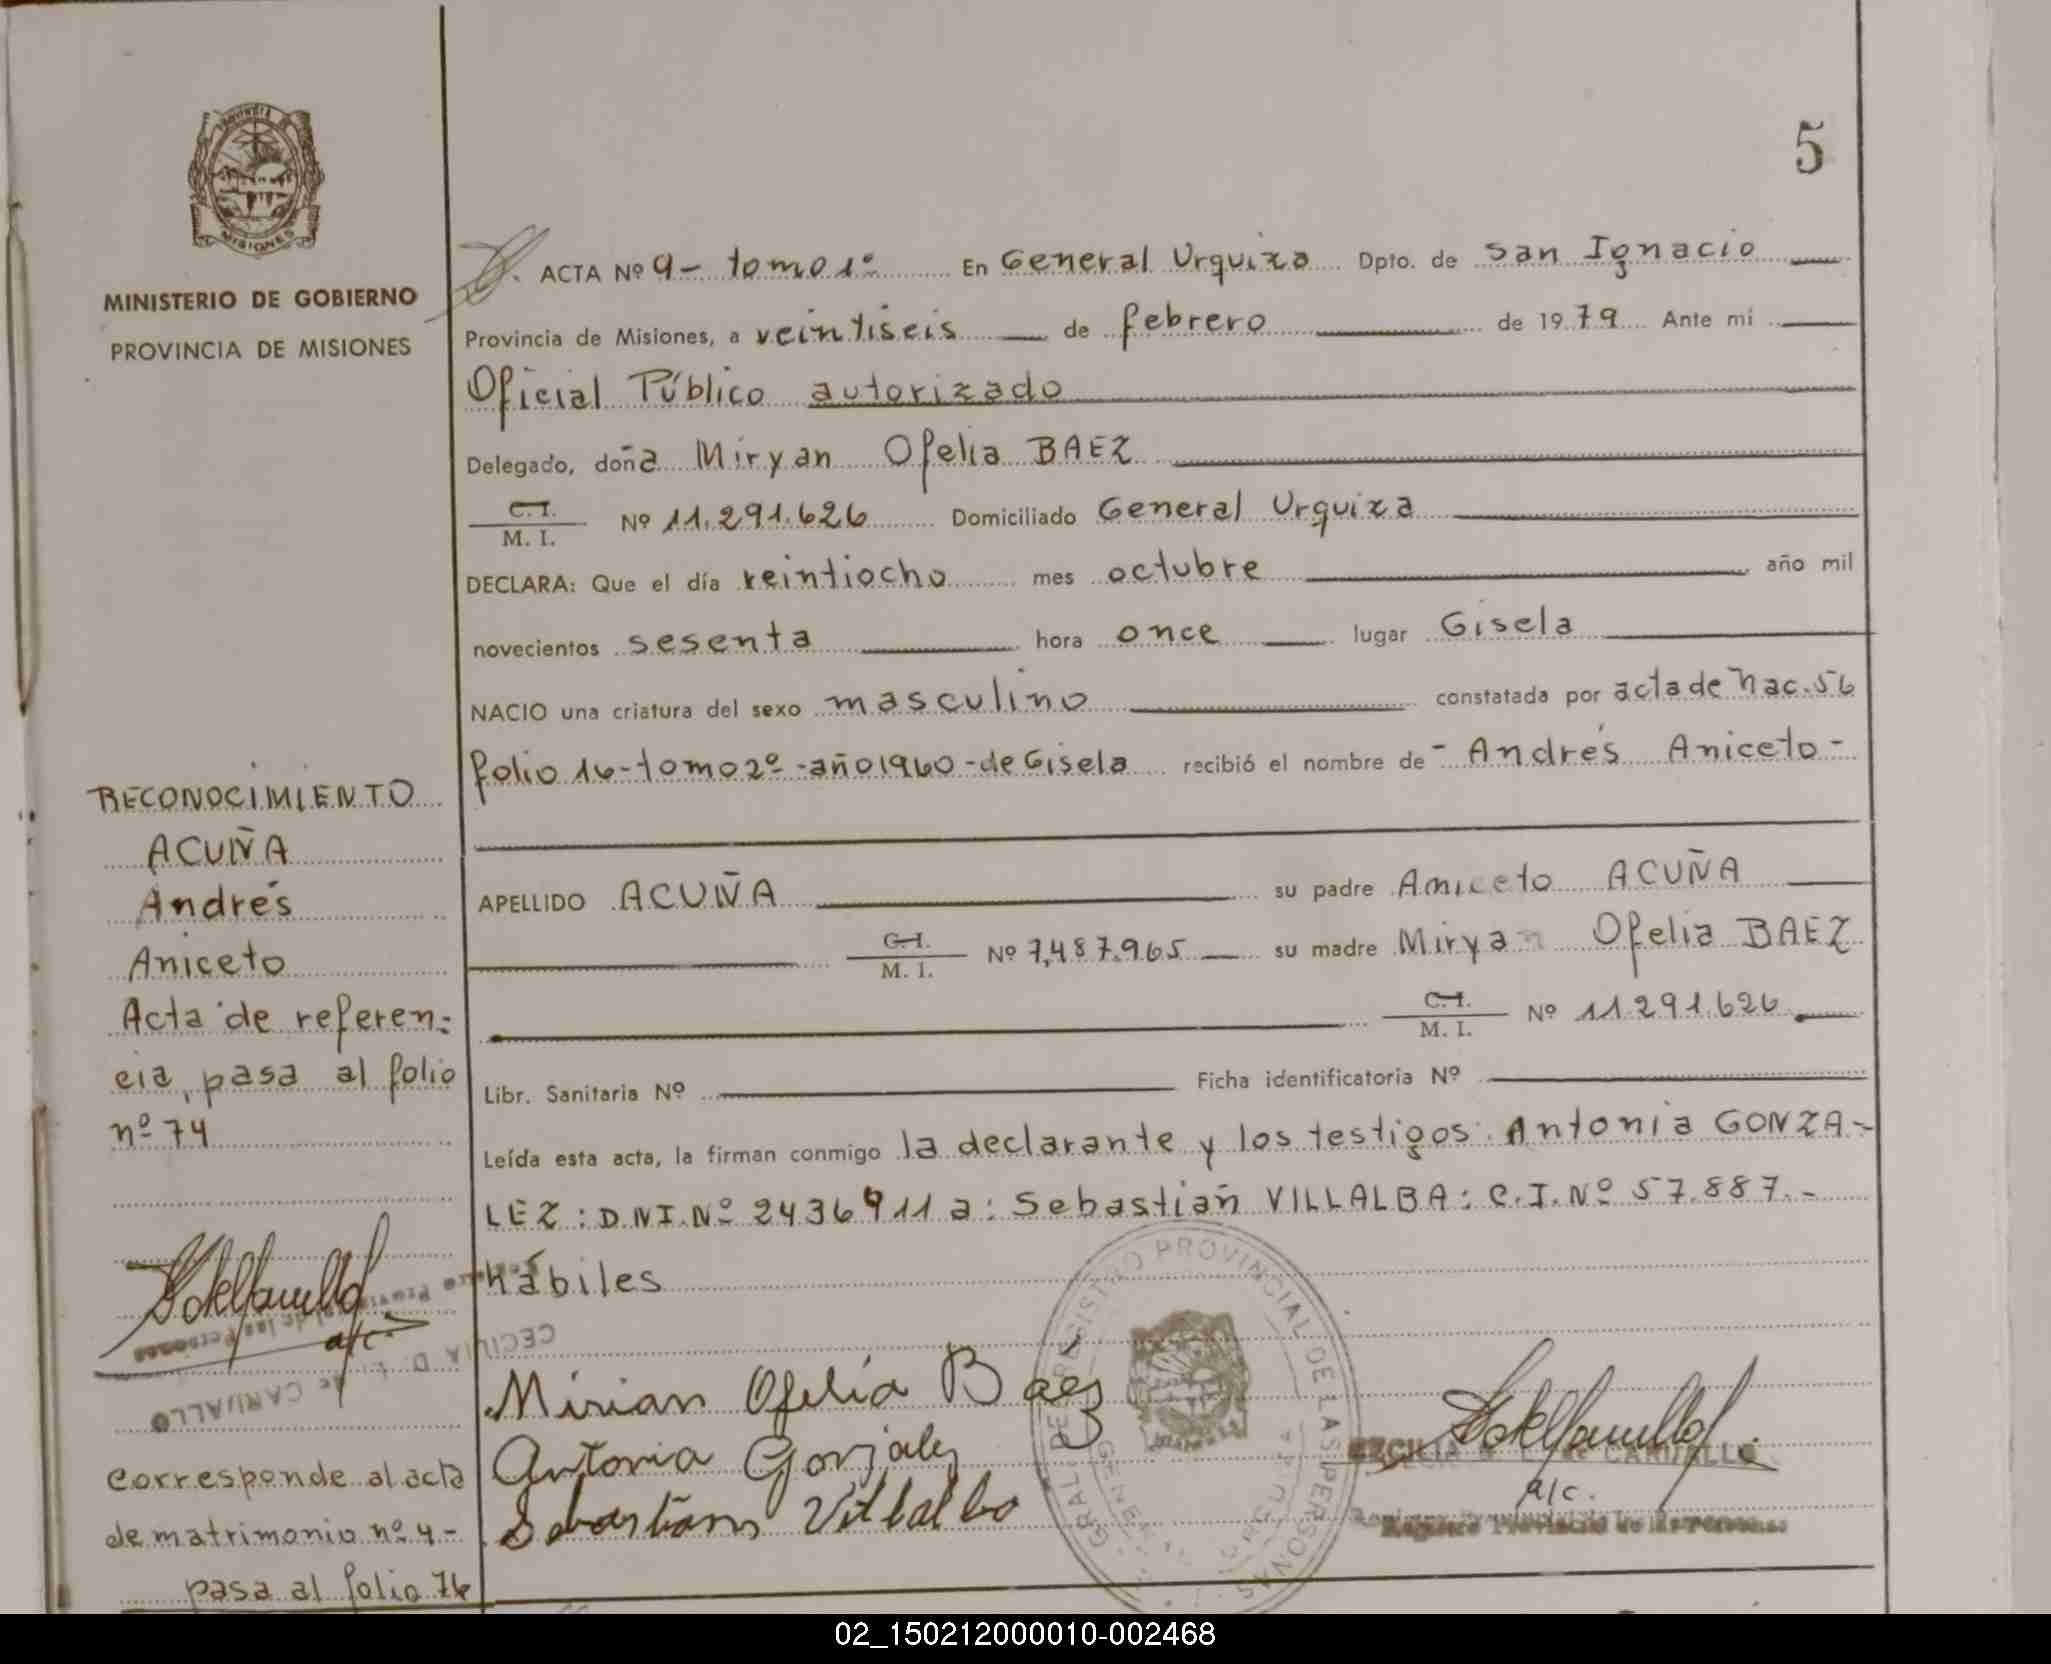 5
MINISTERIO DE GOBIERNO
PROVINCIA DE MISIONES
MISIONES
ACTA Nº 9- tomo 1º En General Urquiza Dpto. de San Ignacio
Provincia de Misiones, a veintiseis de febrero de 1979 Ante mi
Oficial Público autorizado
Delegado, doña Miryan Ofelia BAEZ
C.I. / M. I. Nº 11.291.626 Domiciliado General Urquiza
DECLARA: Que el día veintiocho mes octubre año mil
novecientos sesenta hora once lugar Gisela
NACIO una criatura del sexo masculino constatada por acta de nac. 56
folio 16-tomo 2º-año 1960-de Gisela recibió el nombre de - Andrés Aniceto-
APELLIDO ACUÑA su padre Aniceto ACUÑA
C.I. / M. I. Nº 7,487.965 su madre Miryan Ofelia BAEZ
C.I. / M. I. Nº 11.291.626
Libr. Sanitaria Nº Ficha identificatoria Nº
Leída esta acta, la firman conmigo la declarante y los testigos: Antonia GONZA-
LEZ: D.N.I. Nº 2436911 a: Sebastian VILLALBA: C.I. Nº 57.887.-
hábiles
Mirian Ofelia Baez
Antonia Gonzalez
Sebastian Villalba
RECONOCIMIENTO
ACUÑA
Andrés
Aniceto
Acta de referen-
cia, pasa al folio
nº 74
a/c.
CECILIA D. L. de CARVALLO
Corresponde al acta
de matrimonio nº 4-
pasa al folio 76
REGISTRO PROVINCIAL DE LAS PERSONAS
CECILIA D. L. de CARVALLO
a/c.
Registro Provincial de las Personas
02_150212000010-002468